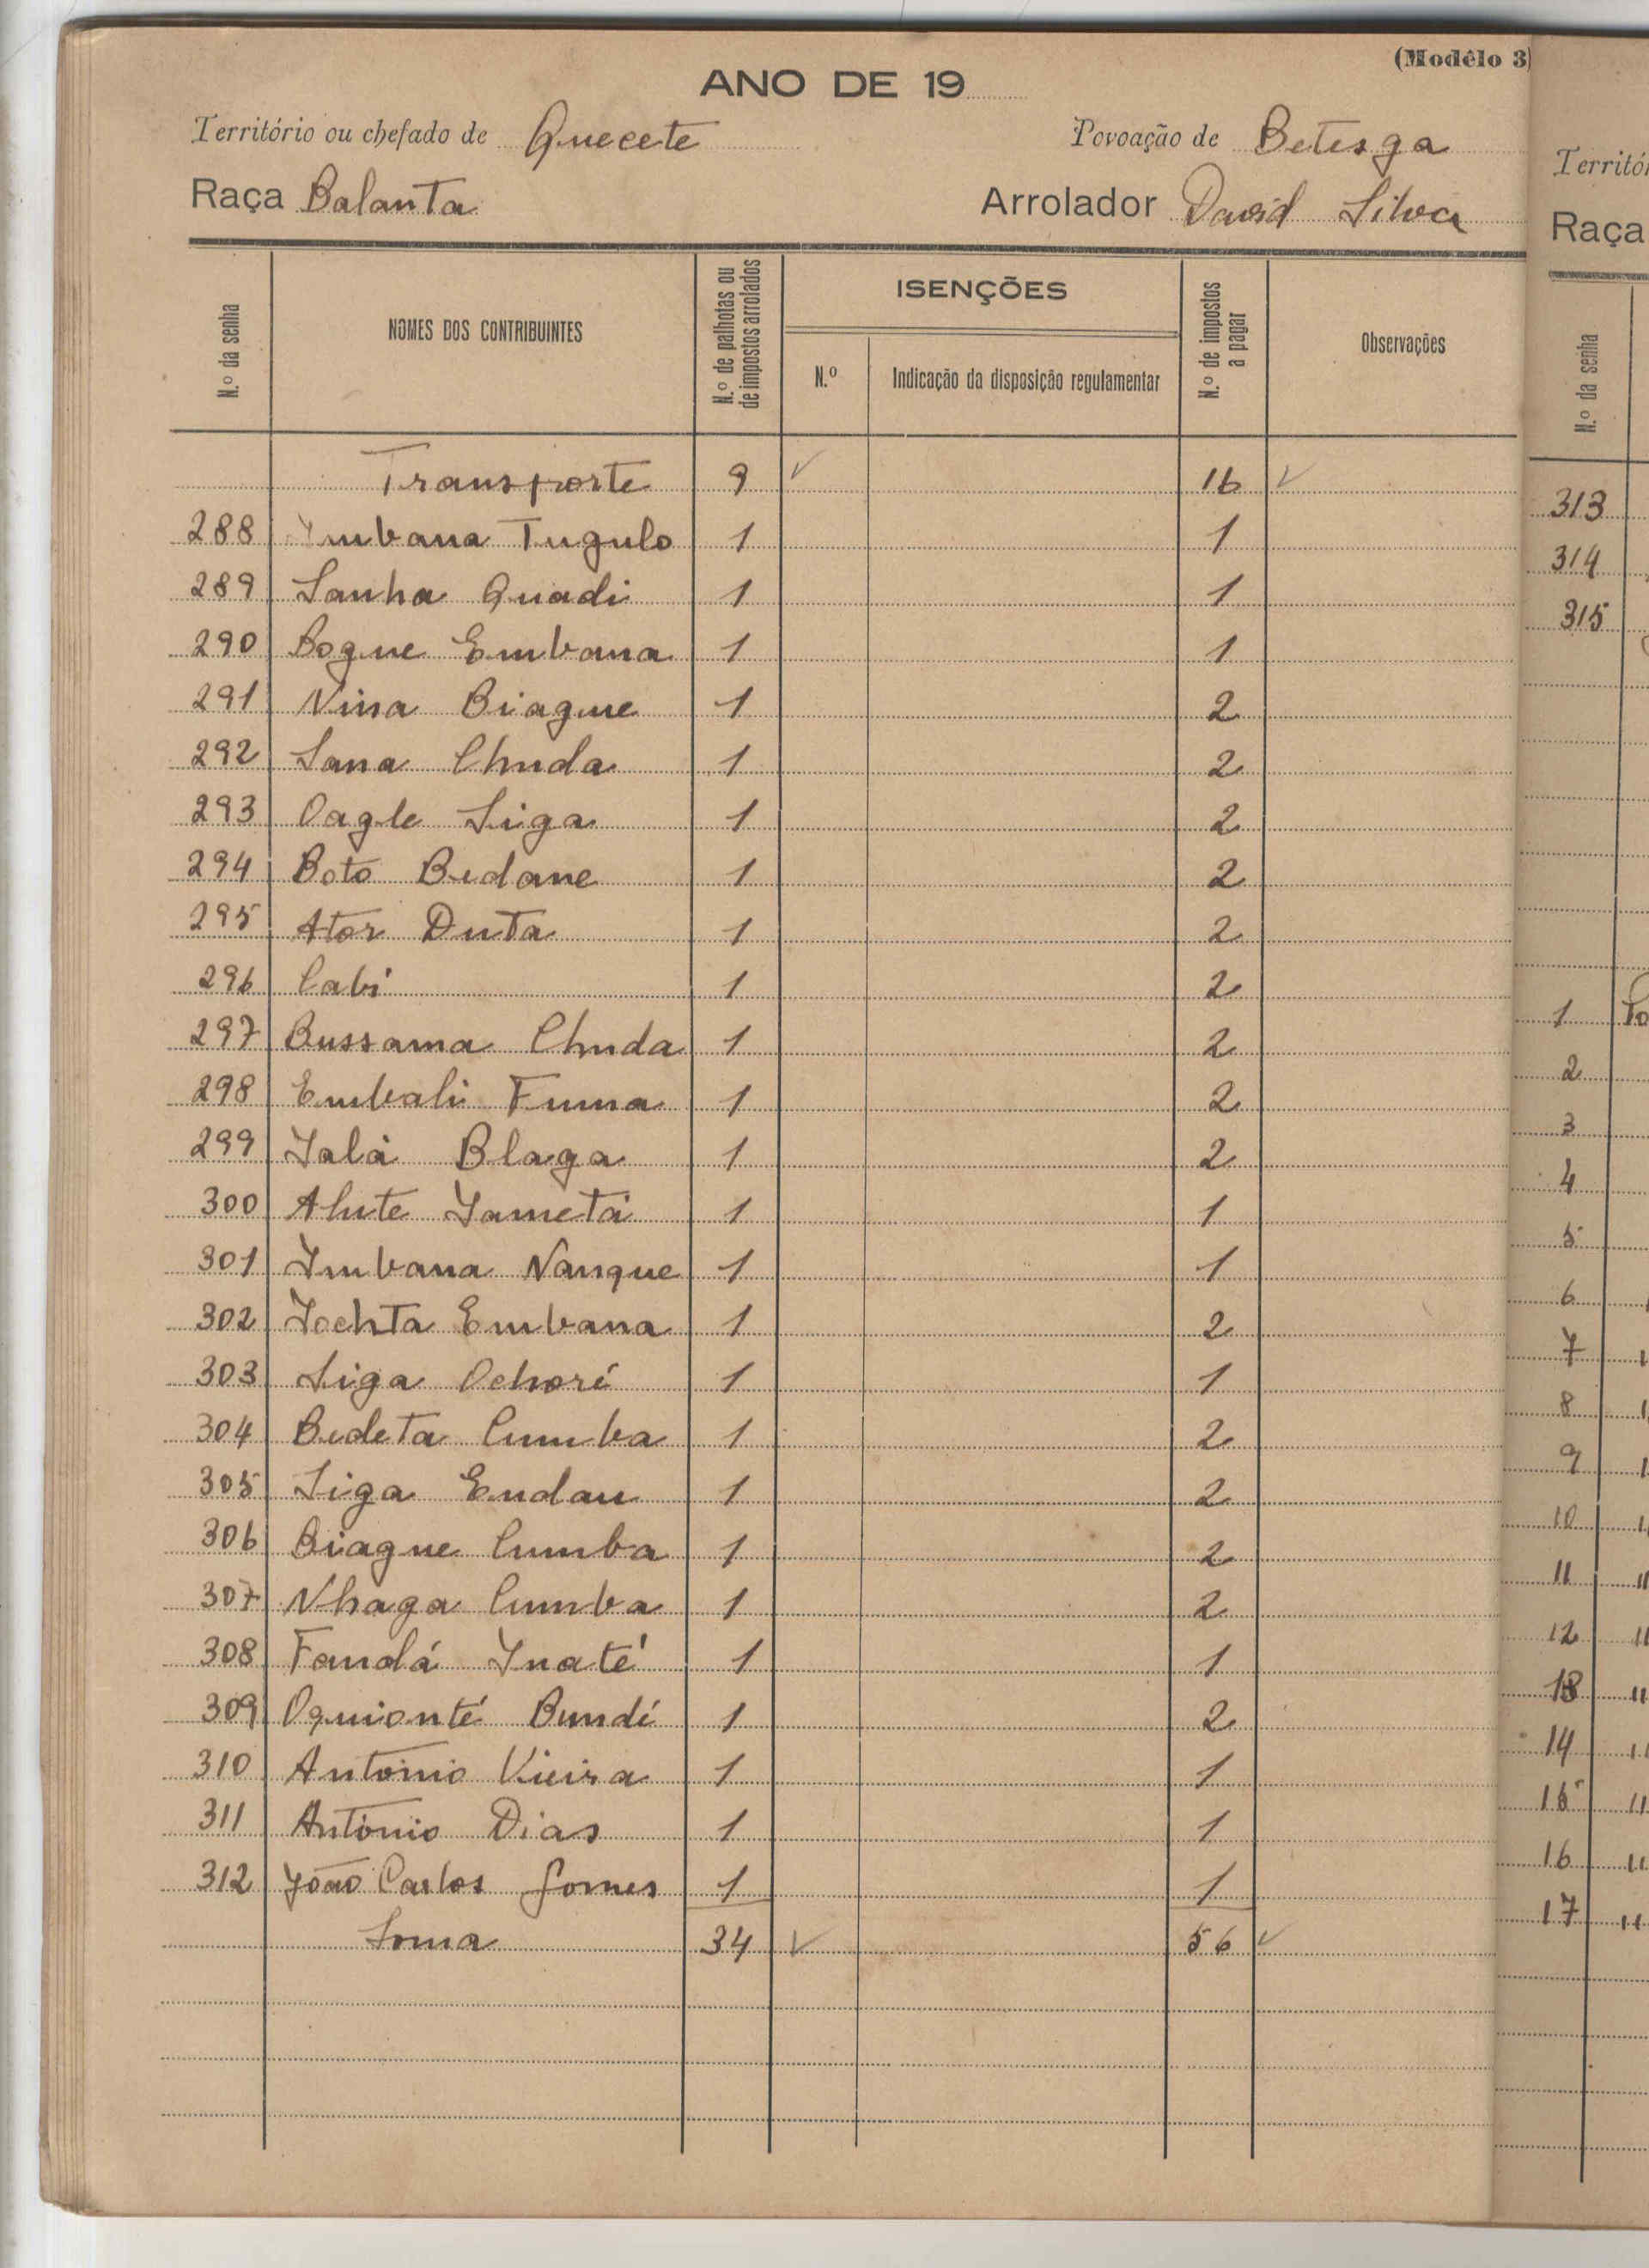 (Modêlo 3)
ANO DE 19
Território ou chefado de Quecete Povoação de Betesga
Raça Balanta Arrolador David Silva
N.º da senha NOMES DOS CONTRIBUINTES N.º de palhotas ou de impostos arrolados ISENÇÕES N.º Indicação da disposição regulamentar N.º de impostos a pagar Observações
Transporte 9 16
288 Ymbana Tugulo 1 1
289 Sanha Quadi 1 1
290 Bogne Embana 1 1
291 Nina Biague 1 2
292 Sana Chuda 1 2
293 Oagle Siga 1 2
294 Boto Bedane 1 2
295 Ator Duta 1 2
296 Cabi 1 2
297 Bussama Chuda 1 2
298 Embali Fuma 1 2
299 Yalá Blaga 1 2
300 Alute Yametá 1 1
301 Ymbana Nanque 1 1
302 Yochta Embana 1 2
303 Siga Ochoré 1 1
304 Bedeta Cumba 1 2
305 Siga Endau 1 2
306 Biague Cumba 1 2
307 Nhaga Cumba 1 2
308 Fandá Ynaté 1 1
309 Oquionté Bundé 1 2
310 António Vieira 1 1
311 António Dias 1 1
312 João Carlos Gomes 1 1
Soma 34 56
Territó
Raça
N.º da senha
313
314
315
1
2
3
4
5
6
7
8
9
10
11
12
13
14
15
16
17